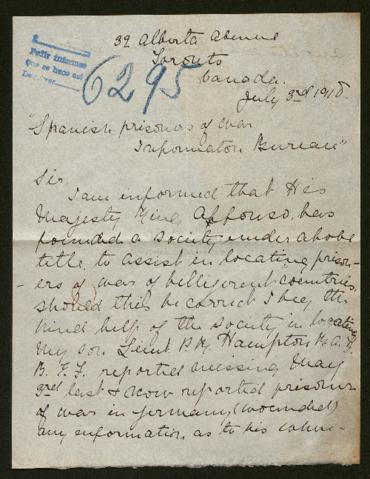 Pedir informes
que se hace asi
6295
39 Alberta Avenue
Toronto
Canada.
July 3rd 1918
"Spanish prisoners of War
Information Bureau"
Sir
I am informed that His
Majesty King Alfonso, has
founded a society under above
title to assist in locating prison-
ers of war of belligerent countries,
should this be correct I beg the
kind help of the society in locating
my son Lieut B Hampton R.A.F.
B.E.F. reported missing May
3rd last & now reported prisoner
of war in Germany, (wounded)
any information as to his where-